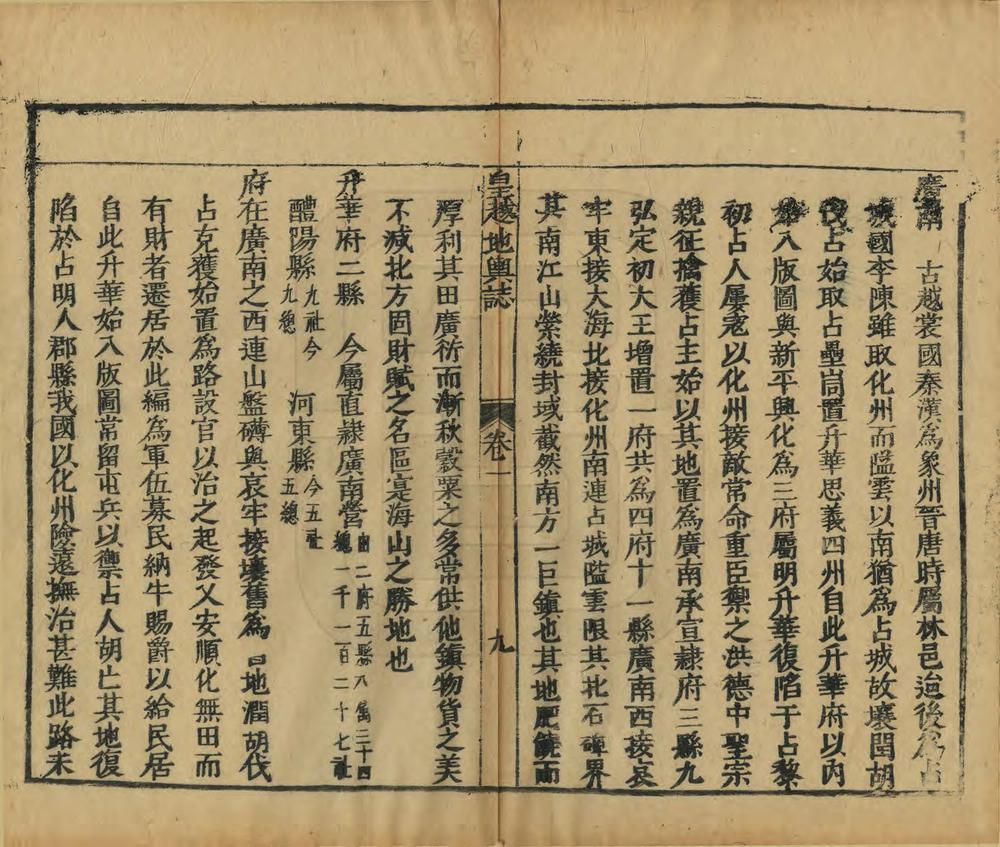 廣南 古越裳國秦漢為象州晉唐時屬林邑迨後為占
城國李陳雖取化州而隘雲以南猶為占城故壤閏胡
伐占始取占壘峝置升華思義四州自此升華府以內
入版圖與新平興化為三府屬明升華復陷于占黎
初占人屢寇以化州接敵常命重臣禦之洪德中聖宗
親征擒獲占主始以其地置為廣南承宣隷府三縣九
弘定初大王增置一府共為四府十一縣廣南西接哀
牢東接大海北接化州南連占城隘雲限其北石碑界
其南江山縈繞封域截然南方一巨鎮也其地肥饒而
皇越地輿誌 卷一 九
厚利其田廣衍而漸秋穀粟之多常供他鎮物貨之美
不减北方固財賦之名區寔海山之勝地也
升華府二縣 今屬直隷廣南營 二府五縣八屬三十四
總一千一百二十七社
醴陽縣 九社今九總 河東縣 今五社五總
府在廣南之西連山盤礴與哀牢接壤舊為占地潤胡伐
占克獲始置為路設官以治之起發乂安順化無田而
有財者遷居於此編為軍伍募民納牛賜爵以給民居
自此升華始入版圖常留屯兵以禦占人胡亡其地復
陷於占明人郡縣我國以化州險遠撫治甚難此路未